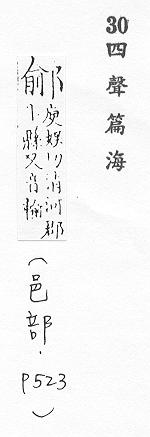 30四聲篇海
鄃
庾娛切清河郡
縣又音
(邑部.P523)